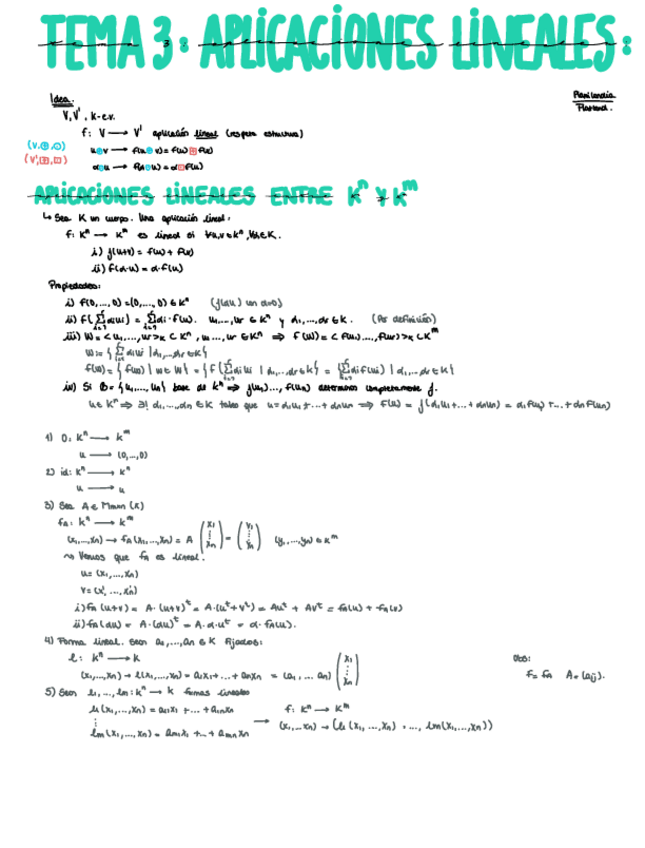 TEMA 3: APLICACIONES LINEALES:
Idea.
V, V', K-e.v.
f: V → V' aplicación lineal (respeta estructura)
(V,⊕,⊙) u⊕v → f(u⊕v) = f(u) ⊞ f(v)
(V',⊞,⊡) α⊙u → f(α⊙u) = α⊡f(u)
APLICACIONES LINEALES ENTRE Kⁿ Y Kᵐ
↳ Sea K un cuerpo. Una aplicación lineal:
f: Kⁿ → Kᵐ es lineal si ∀u,v∈Kⁿ, ∀α∈K.
i) f(u+v) = f(u) + f(v)
ii) f(α·u) = α·f(u)
Propiedades:
i) f(0,...,0) = (0,...,0) ∈ Kⁿ (f(αu) con α=0)
ii) f(Σ αiui) = Σ αi·f(ui). u₁,...,ur ∈ Kⁿ y α₁,...,αr ∈ K. (Por definición)
iii) W = <u₁,...,ur>K ⊂ Kⁿ, u₁,...,ur ∈ Kⁿ ⇒ f(W) = <f(u₁),...,f(ur)>K ⊂ Kᵐ
W = { Σ αiui | α₁,...,αr ∈ K}
f(W) = { f(w) | w ∈ W} = {f(Σ αiui | α₁,...,αr ∈ K} = {Σ αif(ui) | α₁,...,αr ∈ K}
iv) Si B = {u₁,...,un} base de Kⁿ ⇒ f(u₁),..., f(un) determinan completamente f.
u ∈ Kⁿ ⇒ ∃! α₁,...,αn ∈ K tales que u = α₁u₁ + ... + αnun ⇒ f(u) = f(α₁u₁ + ... + αnun) = α₁f(u₁) + ... + αnf(un)
1) 0: Kⁿ → Kᵐ
u → (0,...,0)
2) id: Kⁿ → Kⁿ
u → u
3) Sea A ∈ Mmxn (K)
fA: Kⁿ → Kᵐ
(x₁,...,xn) → fA(x₁,...,xn) = A (x₁ ⋮ xn) = (y₁ ⋮ yn) (y₁,...,yn) ∈ Kᵐ
↝ Veamos que fA es lineal.
u = (x₁,...,xn)
v = (x₁',...,xn')
i) fA(u+v) = A·(u+v)ᵗ = A·(uᵗ+vᵗ) = Auᵗ + Avᵗ = fA(u) + fA(v)
ii) fA(αu) = A·(αu)ᵗ = A·α·uᵗ = α·fA(u).
4) Forma lineal. Sean a₁,...,an ∈ K fijados:
l: Kⁿ → K
(x₁,...,xn) → l(x₁,...,xn) = a₁x₁ + ... + anxn = (a₁ ... an) (x₁ ⋮ xn)
Obs:
f = fA A = (aij).
5) Sean l₁,...,lm: Kⁿ → K formas lineales
l₁(x₁,...,xn) = a₁₁x₁ + ... + a₁nxn
⋮
lm(x₁,...,xn) = am₁x₁ + ... + amnxn
→ f: Kⁿ → Kᵐ
(x₁,...,xn) → (l₁(x₁,...,xn), ..., lm(x₁,...,xn))